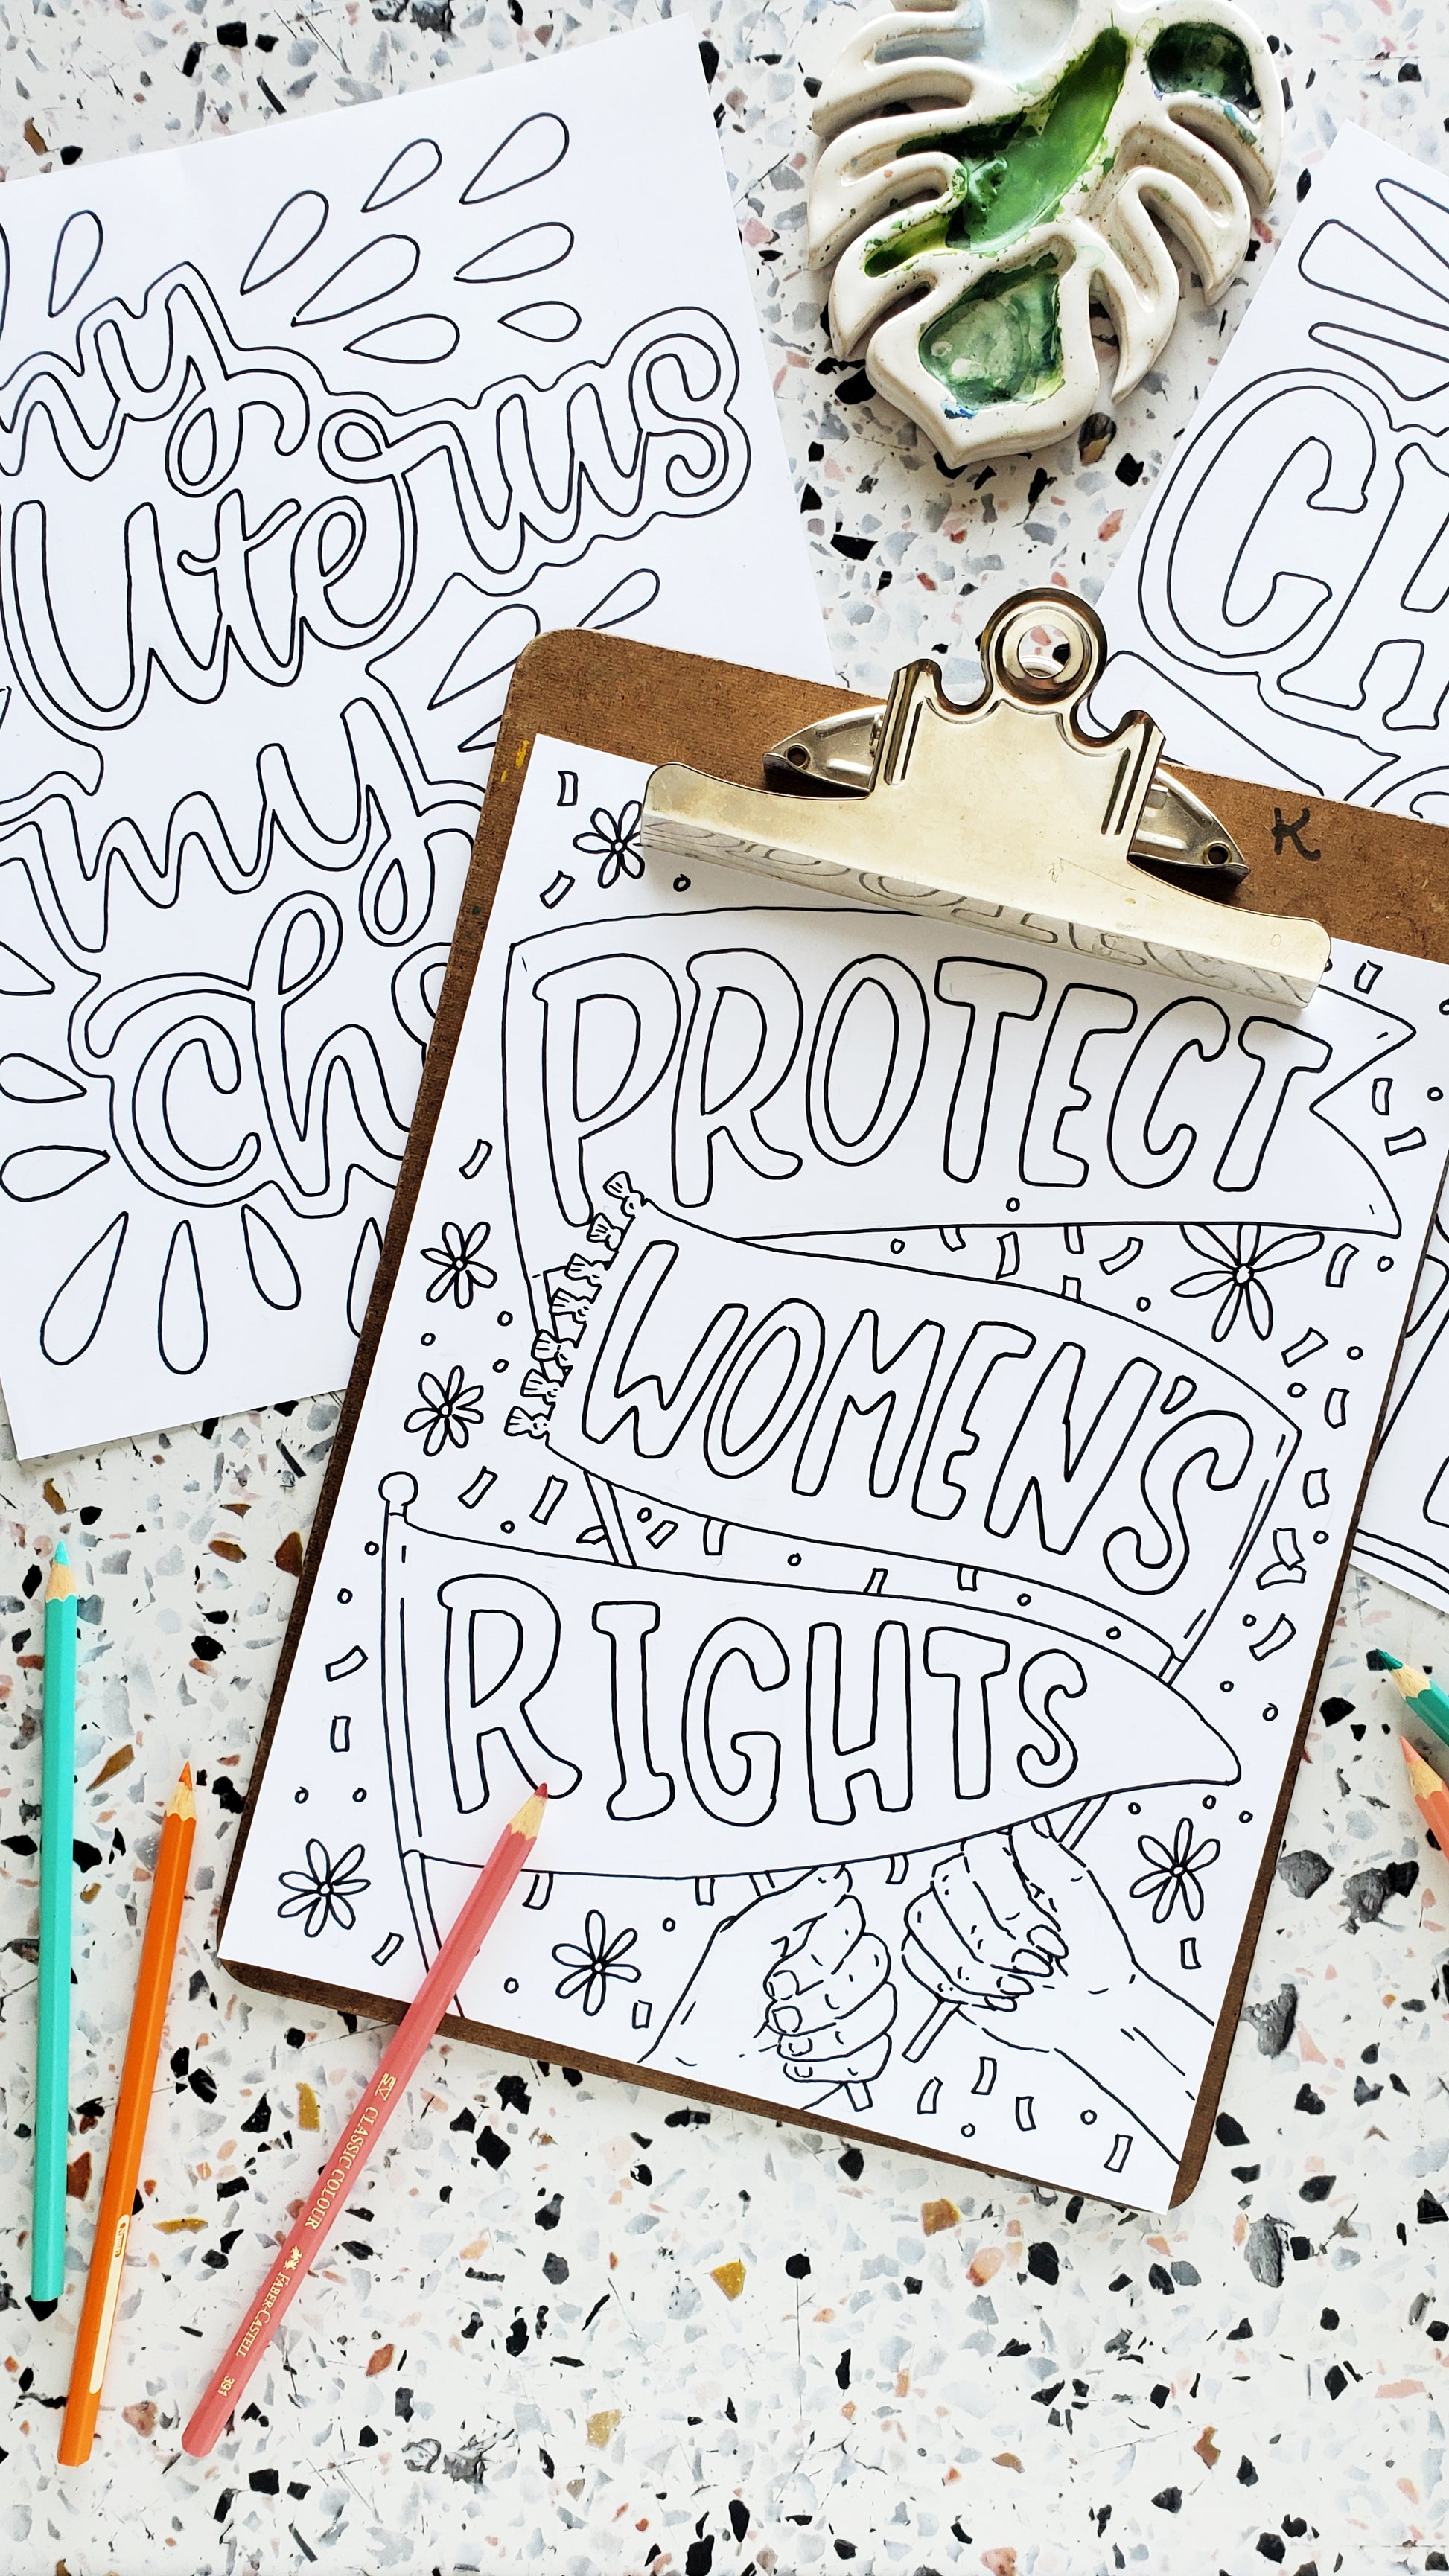 my
uterus
my
ch
CH
K
PROTECT
WOMEN'S
RIGHTS
CLASSIC COLOUR
FABER-CASTELL 391